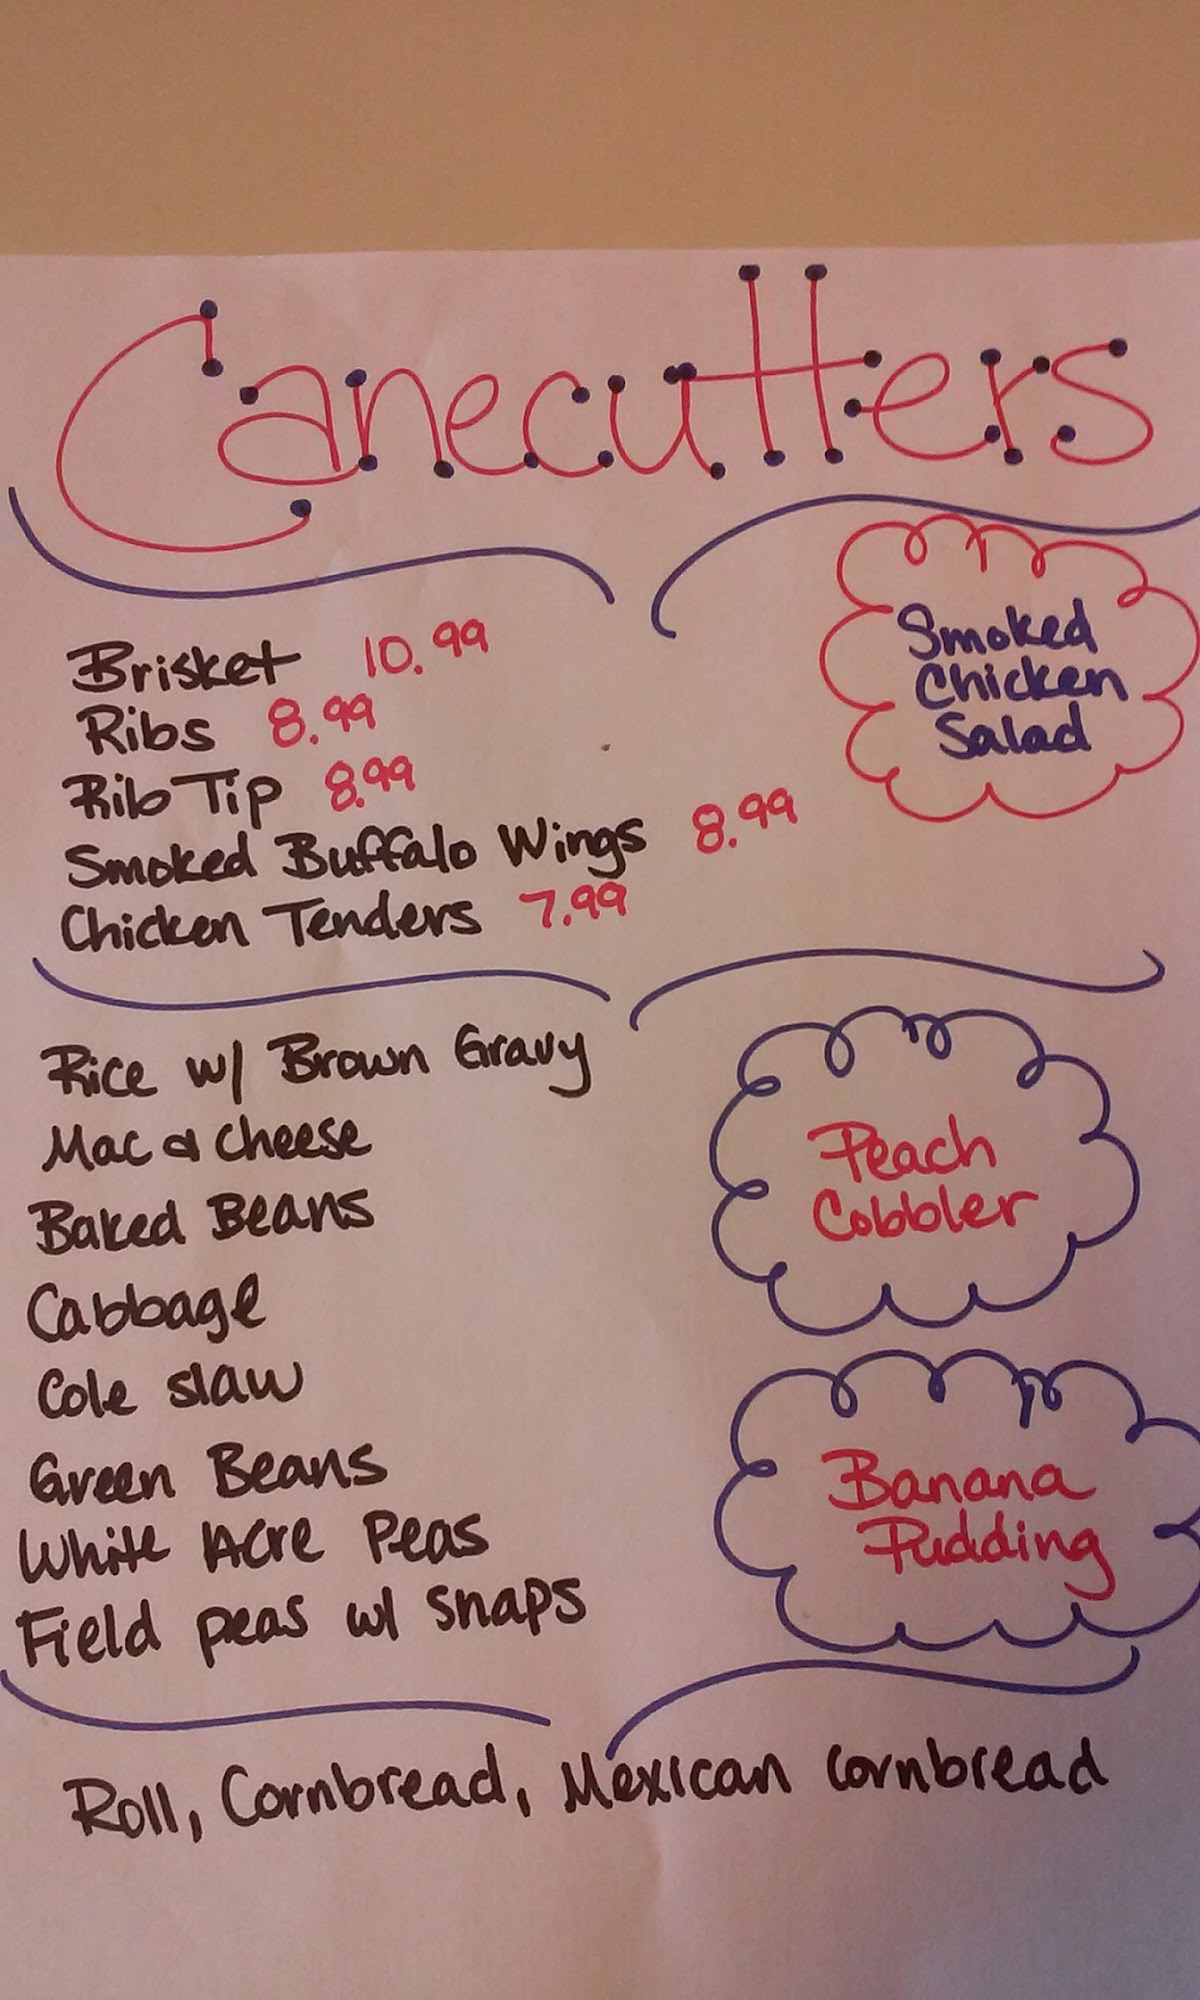 Canecutters
Brisket 10.99
Ribs 8.99
Rib Tip 8.99
Smoked Buffalo Wings 8.99
Chicken Tenders 7.99
Smoked
Chicken
Salad
Rice w/ Brown Gravy
Mac & Cheese
Baked Beans
Cabbage
Cole slaw
Green Beans
White Acre Peas
Field peas w/ snaps
Peach
Cobbler
Banana
Pudding
Roll, Cornbread, Mexican cornbread